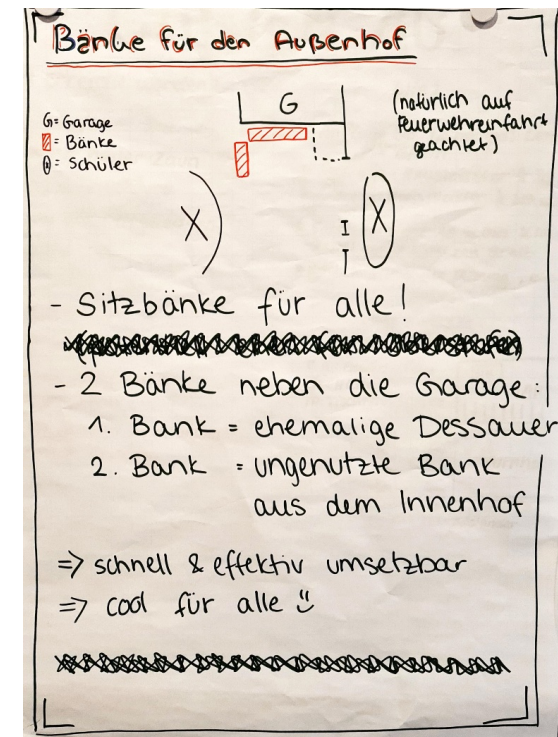 Bänke für den Außenhof
G= Garage
= Bänke
= Schüler
G
(natürlich auf
Feuerwehreinfahrt
geachtet)
X
X
- Sitzbänke für alle!
- 2 Bänke neben die Garage:
1. Bank = ehemalige Dessauer
2. Bank = ungenutzte Bank
aus dem Innenhof
=> schnell & effektiv umsetzbar
=> cool für alle